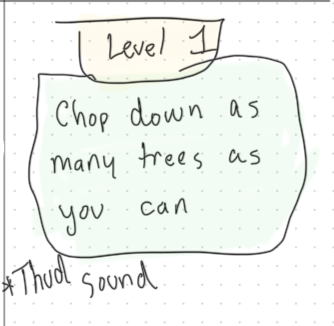 Level 1
Chop down as
many trees as
you can
*Thud sound